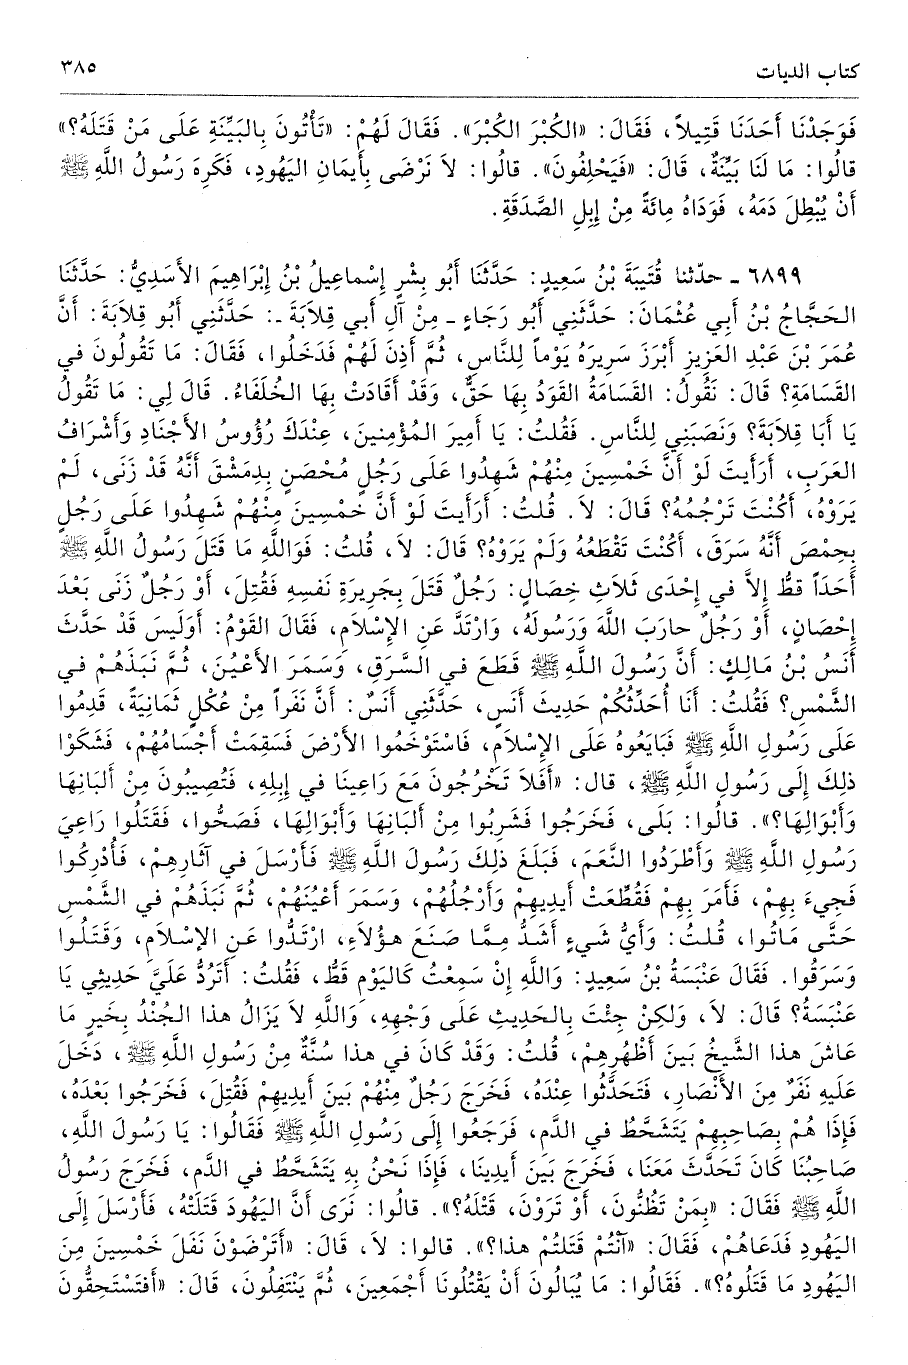 كتاب الديات ٣٨٥
فَوَجَدْنَا أَحَدَنَا قَتِيلاً، فَقَالَ: «الكُبْرَ الكُبْرَ». فَقَالَ لَهُمْ: «تَأْتُونَ بِالبَيِّنَةِ عَلَى مَنْ قَتَلَهُ؟»
قالُوا: مَا لَنَا بَيِّنَةٌ، قَالَ: «فَيَحْلِفُونَ». قالُوا: لاَ نَرْضَى بِأَيمَانِ اليَهُودِ، فَكَرِهَ رَسُولُ اللَّهِ ﷺ
أَنْ يُبْطِلَ دَمَهُ، فَوَدَاهُ مِائَةً مِنْ إِبِلِ الصَّدَقَةِ.
٦٨٩٩ ـ حدّثنا قُتَيبَةُ بْنُ سَعِيدٍ: حَدَّثَنَا أَبُو بِشْرٍ إِسْماعِيلُ بْنُ إِبْرَاهِيمَ الأَسَدِيُّ: حَدَّثَنَا
الحَجَّاجُ بْنُ أَبِي عُثْمَانَ: حَدَّثَنِي أَبُو رَجَاءٍ ـ مِنْ آلِ أَبي قِلاَبَةَ ـ: حَدَّثَنِي أَبُو قِلاَبَةَ: أَنَّ
عُمَرَ بْنَ عَبْدِ العَزِيزِ أَبْرَزَ سَرِيرَهُ يَوْماً لِلنَّاسِ، ثُمَّ أَذِنَ لَهُمْ فَدَخَلُوا، فَقَالَ: مَا تَقُولُونَ في
القَسَامَةِ؟ قَالَ: نَقُولُ: القَسَامَةُ القَوَدُ بِهَا حَقٌّ، وَقَدْ أَقَادَتْ بِهَا الخُلَفَاءُ. قَالَ لِي: مَا تَقُولُ
يَا أَبَا قِلاَبَةَ؟ وَنَصَبَنِي لِلنَّاسِ. فَقُلتُ: يَا أَمِيرَ المُؤْمِنينَ، عِنْدَكَ رُؤُوسُ الأَجْنَادِ وَأَشْرَافُ
العَرَبِ، أَرَأَيتَ لَوْ أَنَّ خَمْسِينَ مِنْهُمْ شَهِدُوا عَلَى رَجُلٍ مُحْصَنٍ بِدِمَشْقَ أَنَّهُ قَدْ زَنَى، لَمْ
يَرَوْهُ، أَكُنْتَ تَرْجُمُهُ؟ قَالَ: لاَ. قُلتُ: أَرَأَيتَ لَوْ أَنَّ خَمْسِينَ مِنْهُمْ شَهِدُوا عَلَى رَجُلٍ
بِحِمْصَ أَنَّهُ سَرَقَ، أَكُنْتَ تَقْطَعُهُ وَلَمْ يَرَوْهُ؟ قَالَ: لاَ، قُلتُ: فَوَاللَّهِ مَا قَتَلَ رَسُولُ اللَّهِ ﷺ
أَحَداً قطُّ إِلاَّ في إِحْدَى ثَلاَثِ خِصَالٍ: رَجُلٌ قَتَلَ بِجَرِيرَةِ نَفسِهِ فَقُتِلَ، أَوْ رَجُلٌ زَنَى بَعْدَ
إِحْصَانٍ، أَوْ رَجُلٌ حارَبَ اللَّهَ وَرَسُولَهُ، وَارْتَدَّ عَنِ الإِسْلاَمِ، فَقَالَ القَوْمُ: أَوَلَيسَ قَدْ حَدَّثَ
أَنَسُ بْنُ مَالِكٍ: أَنَّ رَسُولَ اللَّهِ ﷺ قَطَعَ في السَّرَقِ، وَسَمَرَ الأَعْيُنَ، ثُمَّ نَبَذَهُمْ في
الشَّمْسِ؟ فَقُلتُ: أَنَا أُحَدِّثُكُمْ حَدِيثَ أَنَسٍ، حَدَّثَنِي أَنَسٌ: أَنَّ نَفَراً مِنْ عُكْلٍ ثَمَانِيَةً، قَدِمُوا
عَلَى رَسُولِ اللَّهِ ﷺ فَبَايَعُوهُ عَلَى الإِسْلاَمِ، فَاسْتَوْخَمُوا الأَرْضَ فَسَقِمَتْ أَجْسَامُهُمْ، فَشَكَوْا
ذلِكَ إِلَى رَسُولِ اللَّهِ ﷺ، قال: «أَفَلاَ تَخْرُجُونَ مَعَ رَاعِينَا في إِبِلِهِ، فَتُصِيبُونَ مِنْ أَلبَانِهَا
وَأَبْوَالِهَا؟». قالُوا: بَلَى، فَخَرَجُوا فَشَرِبُوا مِنْ أَلبَانِهَا وَأَبْوَالِهَا، فَصَحُّوا، فَقَتَلُوا رَاعِيَ
رَسُولِ اللَّهِ ﷺ وَأَطْرَدُوا النَّعَمَ، فَبَلَغَ ذلِكَ رَسُولَ اللَّهِ ﷺ فَأَرْسَلَ في آثَارِهِمْ، فَأُدْرِكُوا
فَجِيءَ بِهِمْ، فَأَمَرَ بِهِمْ فَقُطِّعَتْ أَيدِيهِمْ وَأَرْجُلُهُمْ، وَسَمَرَ أَعْيُنَهُمْ، ثُمَّ نَبَذَهُمْ في الشَّمْسِ
حَتَّى مَاتُوا، قُلتُ: وَأَيُّ شَيءٍ أَشَدُّ مِمَّا صَنَعَ هؤُلاَءِ، ارْتَدُّوا عَنِ الإِسْلاَمِ، وَقَتَلُوا
وَسَرَقُوا. فَقَالَ عَنْبَسَةُ بْنُ سَعِيدٍ: وَاللَّهِ إِنْ سَمِعْتُ كَاليَوْمِ قَطُّ، فَقُلتُ: أَتَرُدُّ عَلَيَّ حَدِيثِي يَا
عَنْبَسَةُ؟ قَالَ: لاَ، وَلكِنْ جِئْتَ بِالحَدِيثِ عَلَى وَجْهِهِ، وَاللَّهِ لاَ يَزَالُ هذا الجُنْدُ بِخَيرٍ مَا
عاشَ هذا الشَّيخُ بَينَ أَظْهُرِهِمْ، قُلتُ: وَقَدْ كَانَ في هذا سُنَّةٌ مِنْ رَسُولِ اللَّهِ ﷺ، دَخَلَ
عَلَيهِ نَفَرٌ مِنَ الأَنْصَارِ، فَتَحَدَّثُوا عِنْدَهُ، فَخَرَجَ رَجُلٌ مِنْهُمْ بَينَ أَيدِيهِمْ فَقُتِلَ، فَخَرَجُوا بَعْدَهُ،
فَإِذَا هُمْ بِصَاحِبِهِمْ يَتَشَحَّطُ في الدَّمِ، فَرَجَعُوا إِلَى رَسُولِ اللَّهِ ﷺ فَقَالُوا: يَا رَسُولَ اللَّهِ،
صَاحِبُنَا كَانَ تَحَدَّثَ مَعَنَا، فَخَرَجَ بَينَ أَيدِينَا، فَإِذَا نَحْنُ بِهِ يَتَشَحَّطُ في الدَّمِ، فَخَرَجَ رَسُولُ
اللَّهِ ﷺ فَقَالَ: «بِمَنْ تَظُنُّونَ، أَوْ تَرَوْنَ، قَتْلَهُ؟». قالُوا: نَرَى أَنَّ اليَهُودَ قَتَلَتْهُ، فَأَرْسَلَ إِلَى
اليَهُودِ فَدَعَاهُمْ، فَقَالَ: «آنْتُمْ قَتَلتُمْ هذا؟». قالوا: لاَ، قَالَ: «أَتَرْضَوْنَ نَفَلَ خَمْسِينَ مِنَ
اليَهُودِ مَا قَتَلُوهُ؟». فَقَالُوا: مَا يُبَالُونَ أَنْ يَقْتُلُونَا أَجْمَعِينَ، ثُمَّ يَنْتَفِلُونَ، قَالَ: «أَفَتَسْتَحِقُّونَ